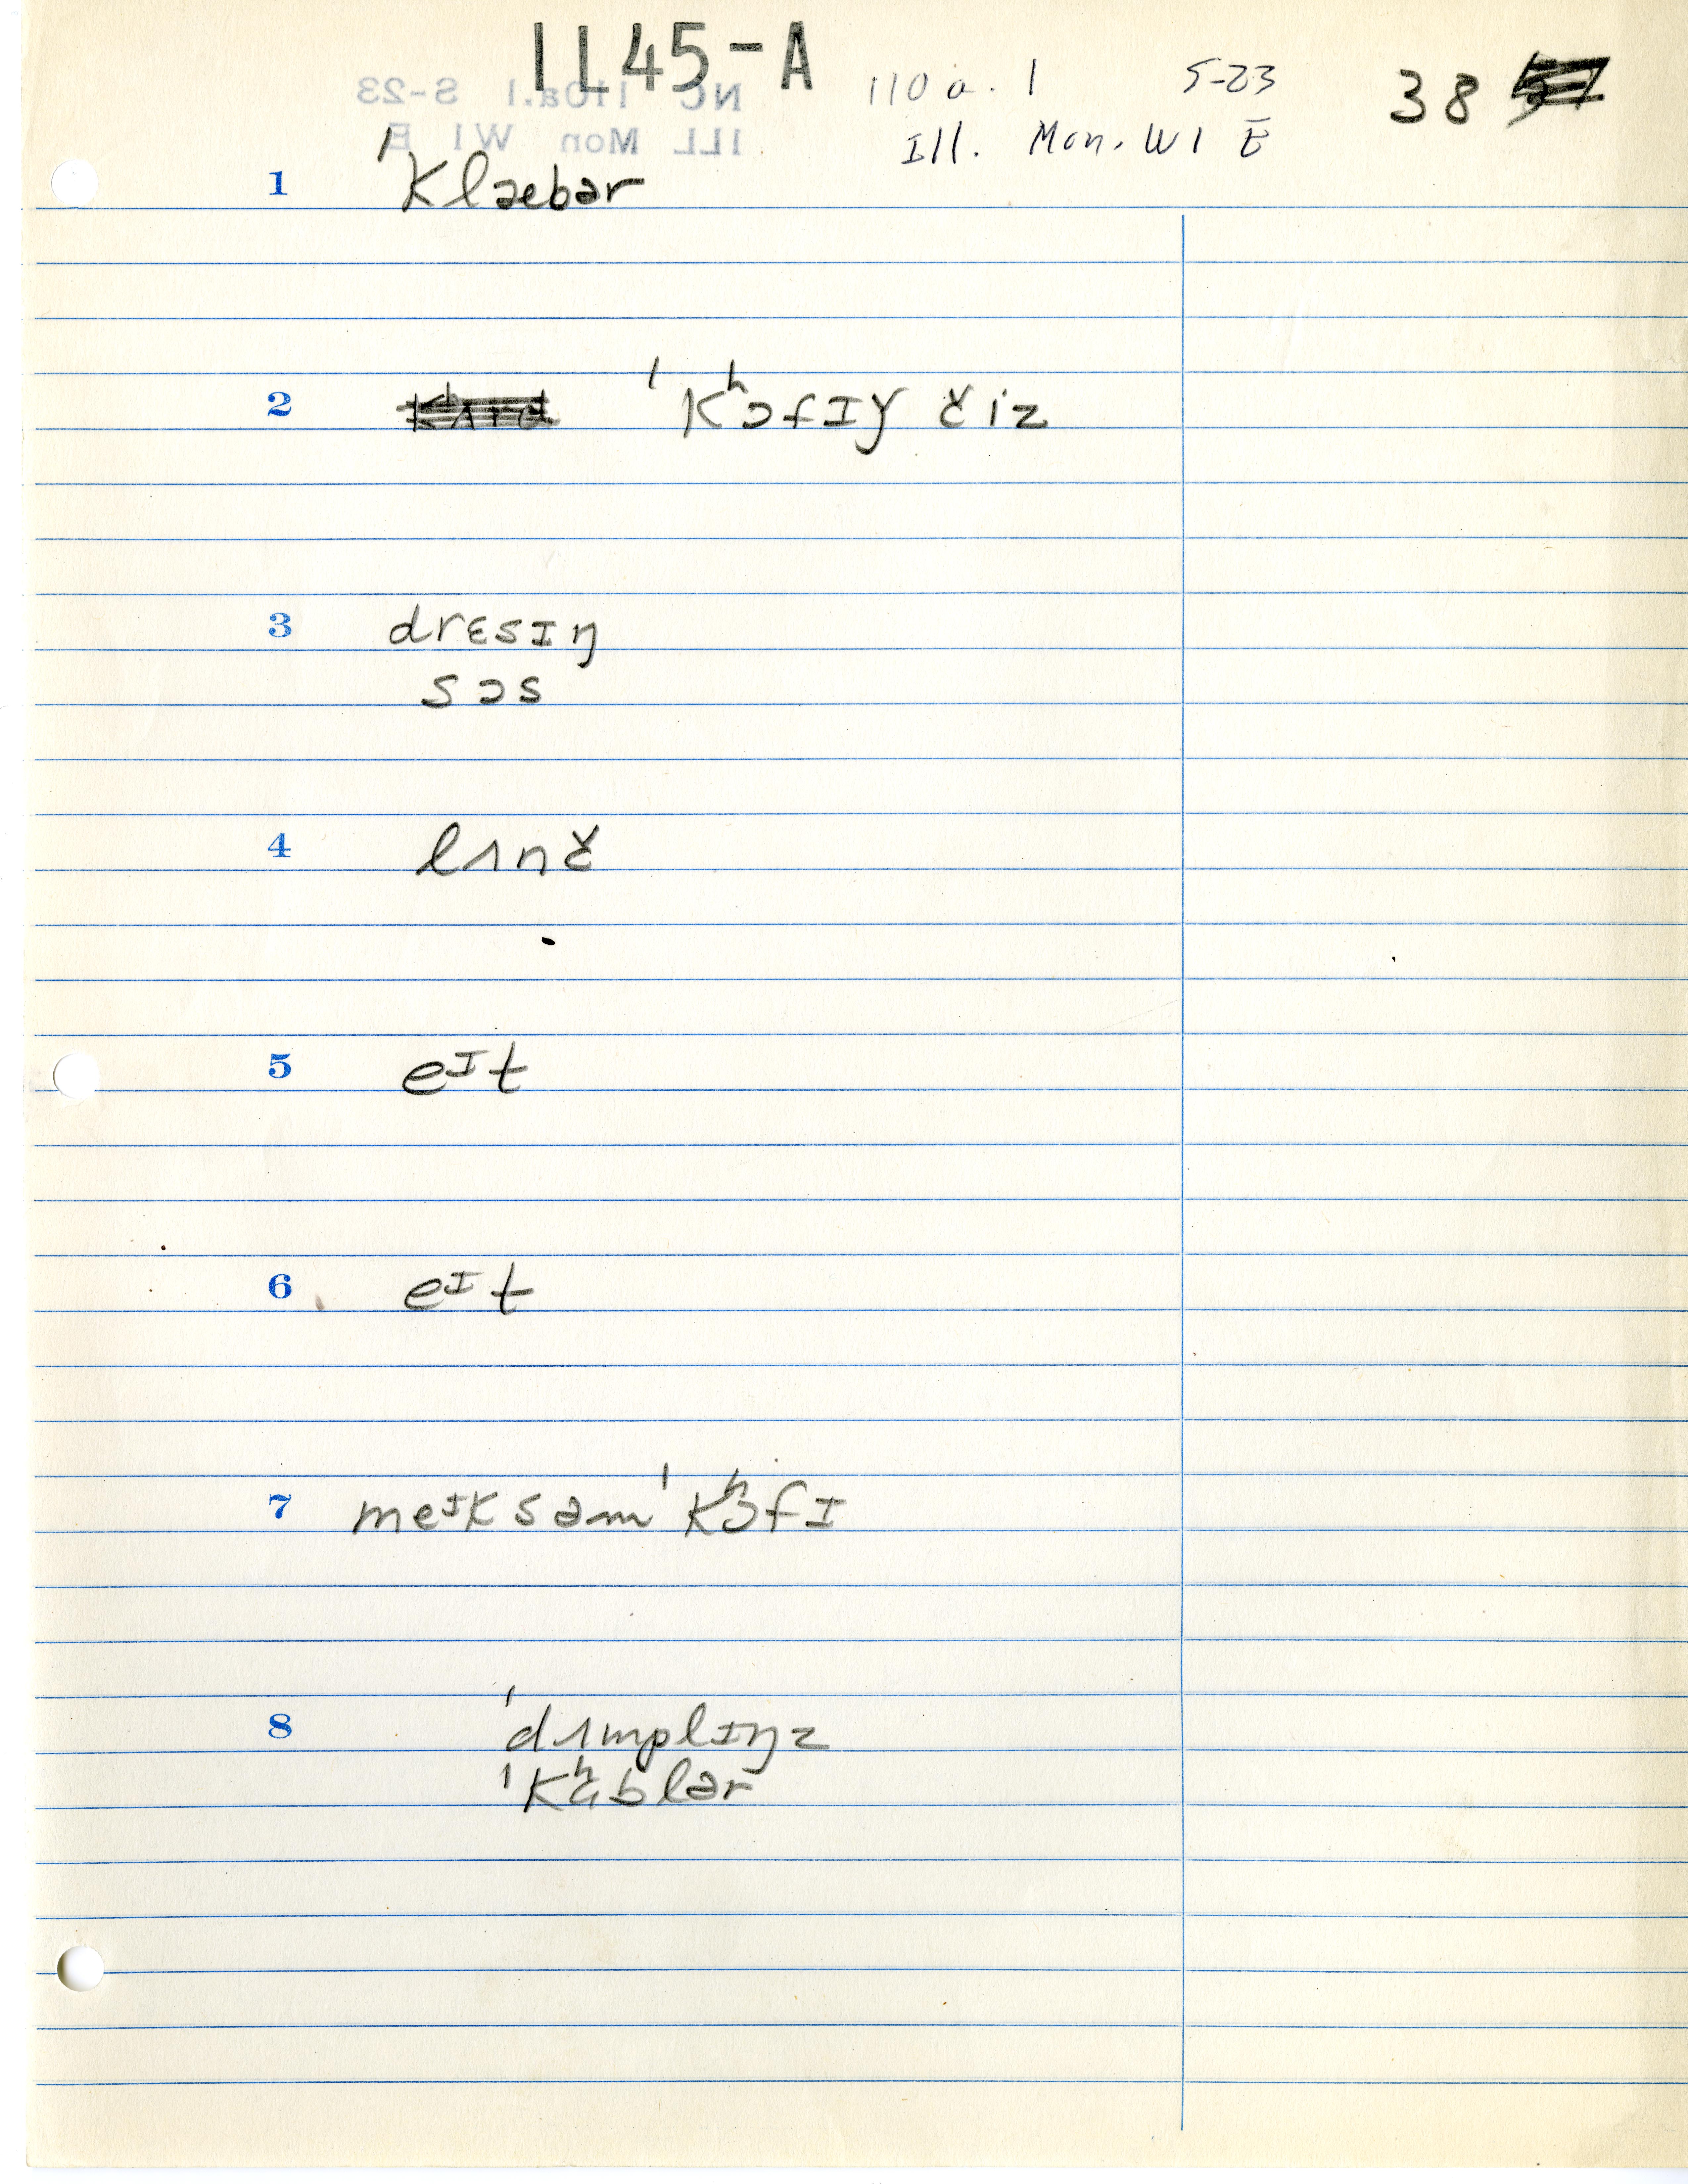 1L45-A
110a.1 S-23 38
Ill. Mon. W1 E
1 ˈklæbər
2 ˈkʰɔfɪɣ čiz
3 drɛsɪŋ
sɔs
4 lʌnč
5 eᴵt
6 eᴵt
7 meᴵksəmˈkʰɔfɪ
8 ˈdʌmplɪŋz
ˈkʰɑblər